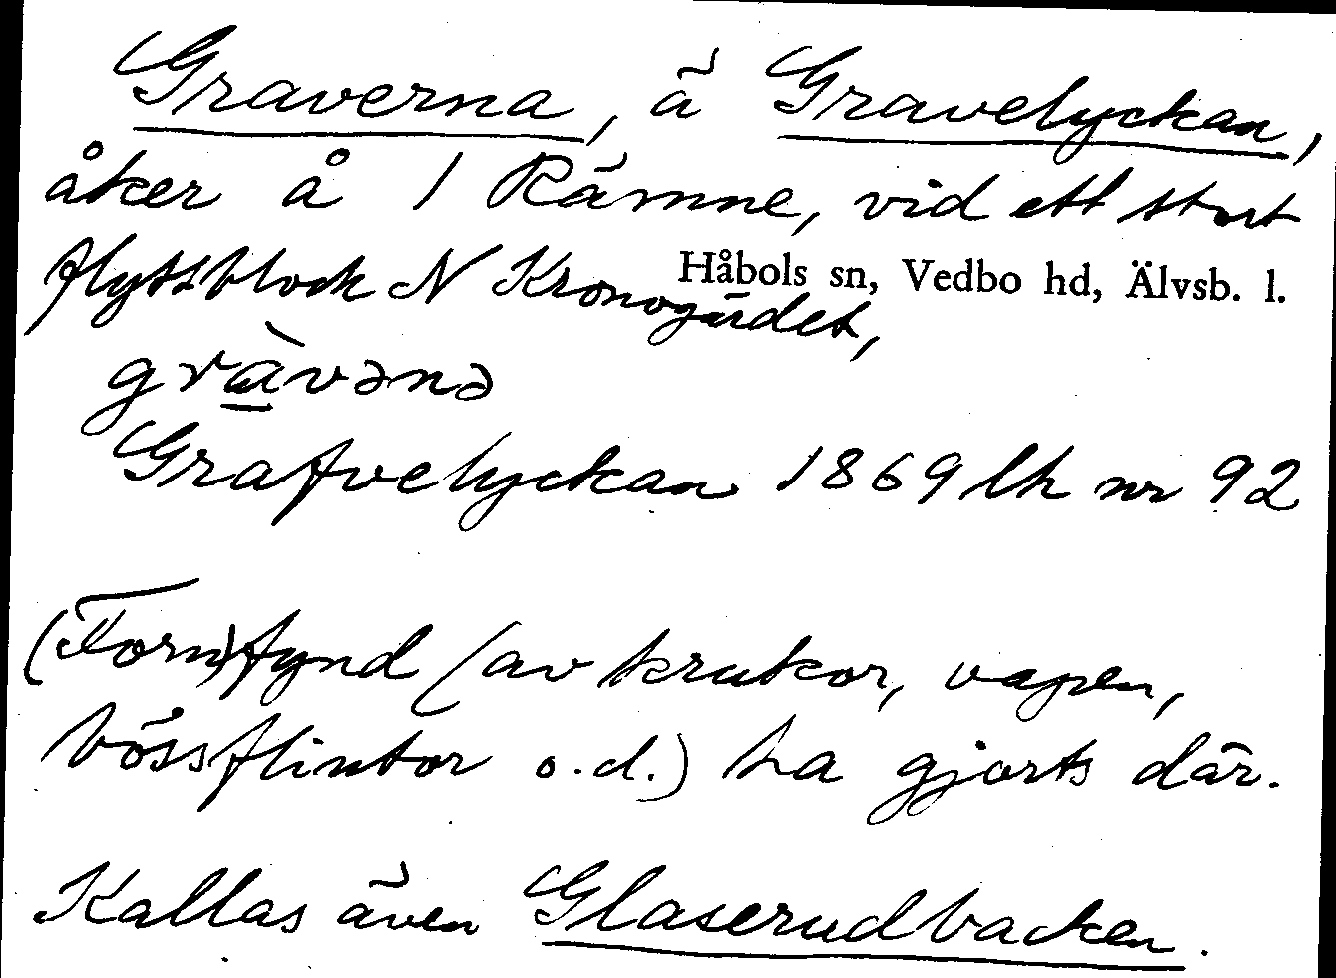 Graverna, ä Gravelyckan,
åker å 1 Rämne, vid ett stort
flyttblock N Kronogärdet,
Håbols sn, Vedbo hd, Älvsb. l.
gràvənə
Grafvelyckan 1869 lh nr 92
(Forn)fynd (av krukor, vapen,
bössflintor o.d.) ha gjorts där.
Kallas även Glaserudbacken.